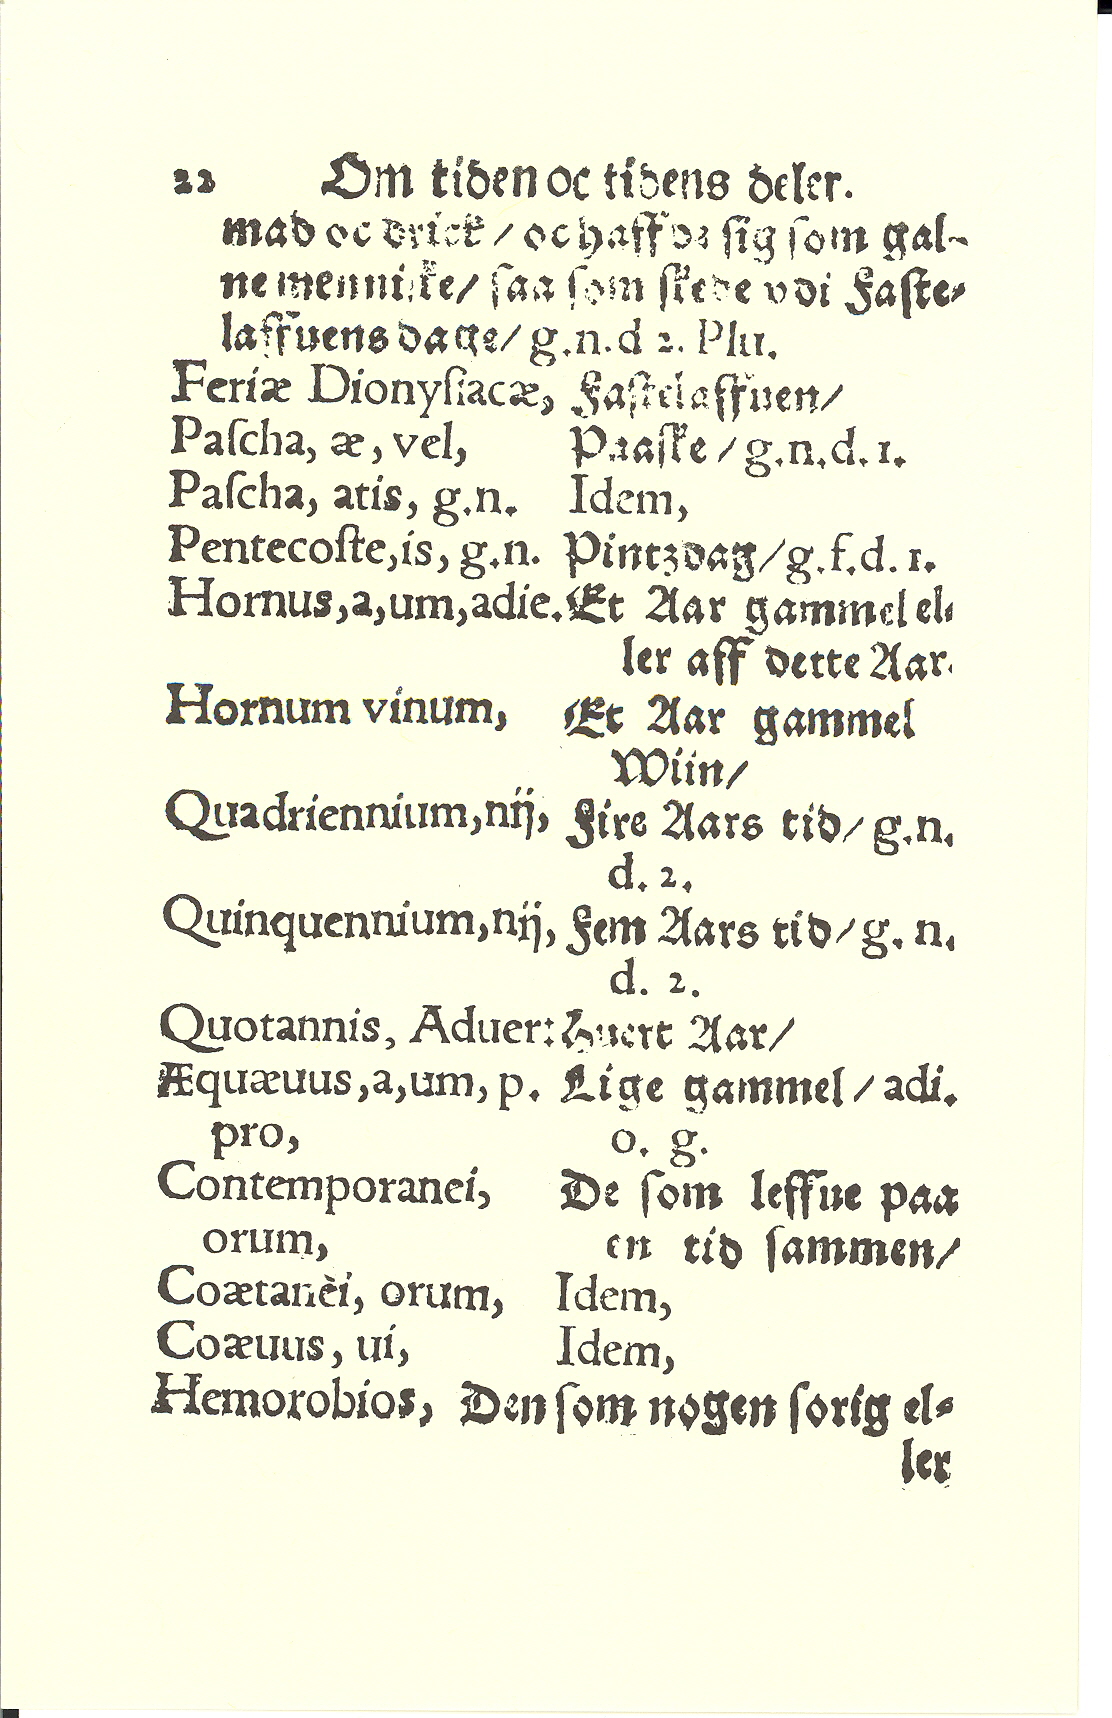 22 Om tiden oc tidens deler.
mad oc drick / oc haffde sig som gal-
ne menniske / saa som skede vdi Faste-
laffuens dage / g.n.d 2. Plu.
Feriæ Dionysiacæ, Fastelaffuen /
Paſcha, æ, vel, Paaske / g.n.d. 1.
Paſcha, atis, g.n. Idem,
Pentecoſte, is, g.n. Pintzdag / g.f.d. 1.
Hornus, a, um, adie. Et Aar gammel el-
ler aff dette Aar.
Hornum vinum, Et Aar gammel
Wiin /
Quadriennium, nij, Fire Aars tid / g.n.
d. 2.
Quinquennium, nij, Fem Aars tid / g. n.
d. 2.
Quotannis, Aduer: Huert Aar /
Æquæuus, a, um, p. Lige gammel / adi.
pro, o. g.
Contemporanei, De som leffue paa
orum, en tid sammen /
Coætanèi, orum, Idem,
Coæuus, ui, Idem,
Hemorobios, Den som nogen sorig el-
ler